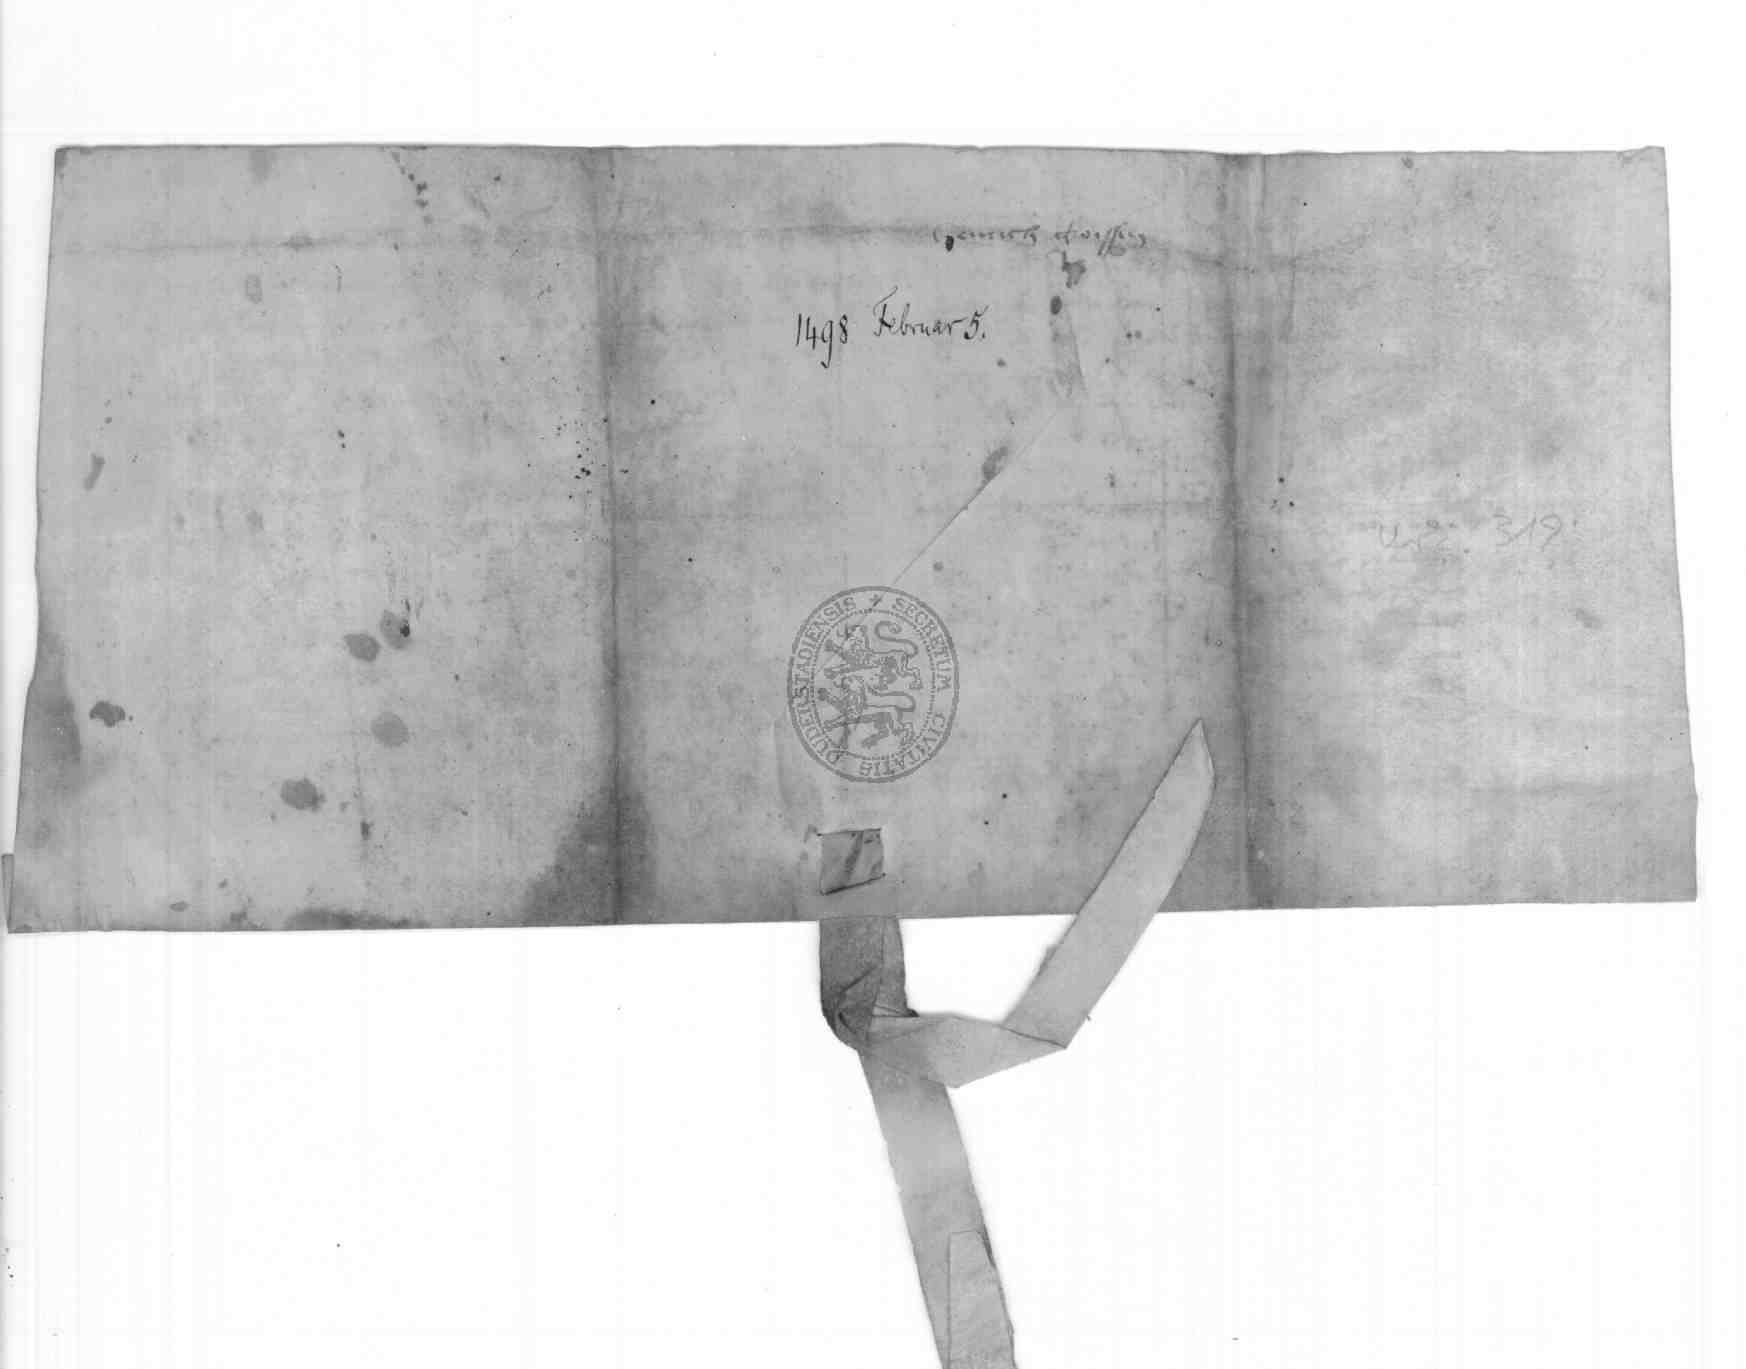 Henrich
1498 Februar 5.
Urk. 319
SECRETUM CIVITATIS DUDERSTADIENSIS